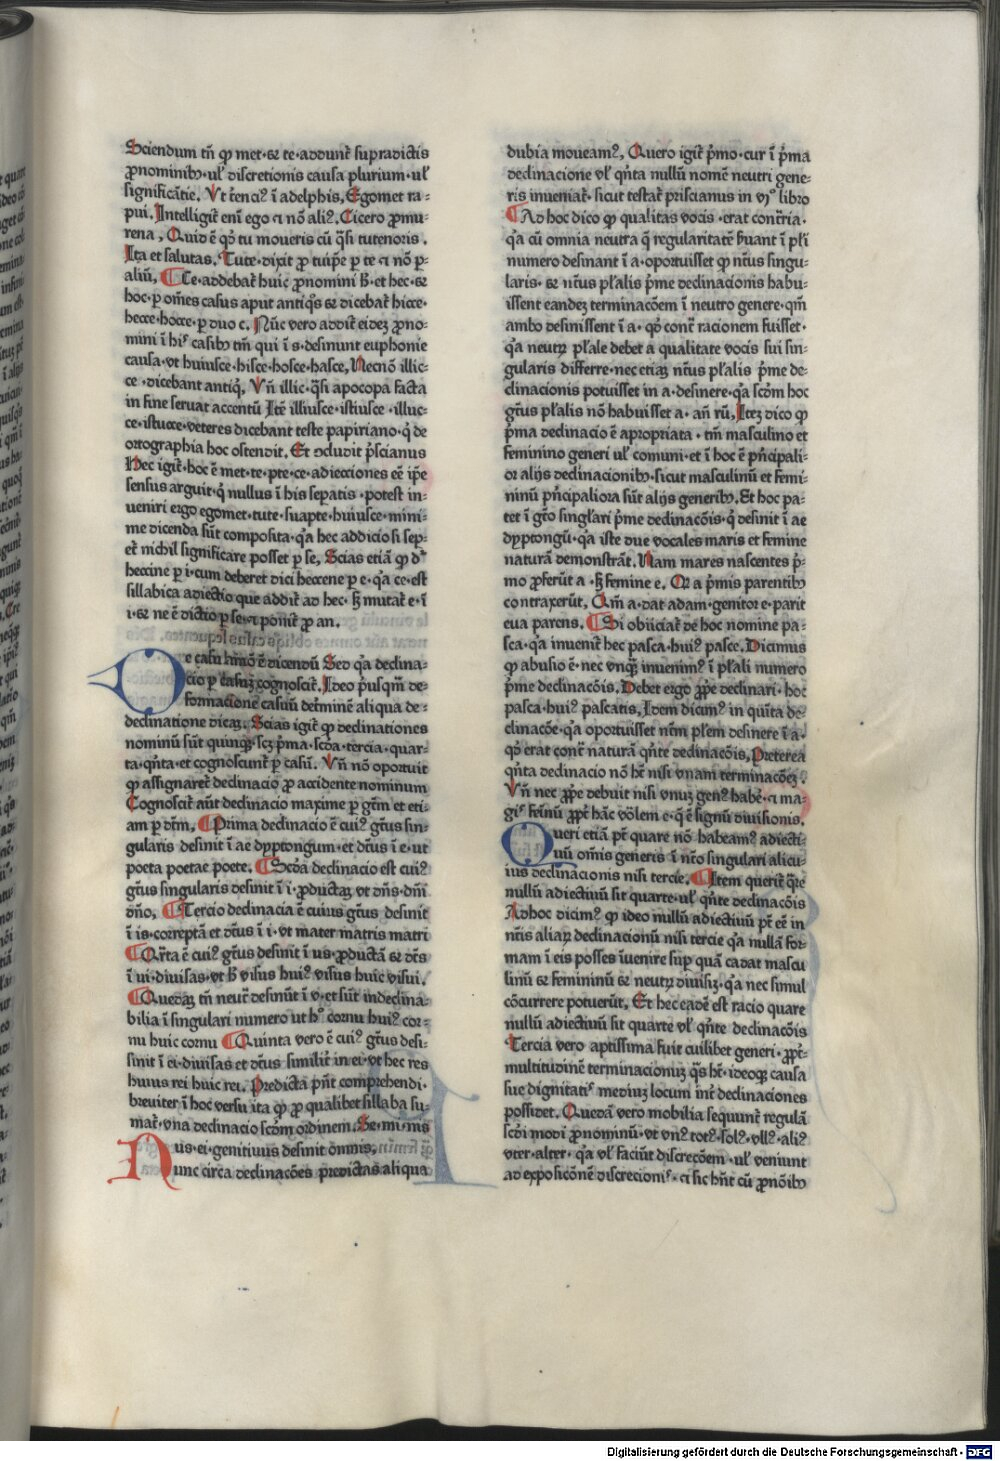 Sciendum tn̄ ꝙ met·⁊ te·addunt᷑ supradictis
ꝓnominibꝫ·ul᷑ discretionis causa plurium·ul᷑
significātie. Ut t᷑enciꝰ ī adelphis, Egomet ra-
pui. Intelligit᷑ enī ego ⁊ nō aliꝰ. Cicero ꝓ mu-
rena, Quid ē qd᷑ tu moueris cū q̄si tutenoris.
Ita et salutas. Tute·dixit ꝓ tuip̄e ꝑ te ⁊ nō ꝑ
aliū, Ce·addebat᷑ huic ꝓnomini h̄·et hec·⁊
hoc·ꝑ om̄es casus aput antiqͦs ⁊ dicebāt hicce·
hecce·hocce·ꝑ duo c. Nūc vero addit᷑ eidēꝫ ꝓno-
mini ī hiꝰ casibꝫ tm̄ qui ī s·desinunt euphonie
causa·vt huiusce·hisce·hosce·hasce, Necnō illic-
ce·dicebant antiqͥ, Vn̄ illic·q̄si apocopa facta
in fine seruat accentū Itē illiusce·istiusce·illuc-
ce·istucce·veteres dicebant teste papiriano·qͥ de
ortographia hoc ostendit. Et ↄcludit p̄scianus
Hec igit᷑·hoc ē met·te·pte·ce·adiecciones eē ip̄e
sensus arguit·qͣ nullus ī his sepatis·potest in-
ueniri ergo egomet·tute·suapte·huiusce·mini-
me dicenda sūt composita·qͣa hec addicio si sep-
et᷑ nichil significare posset ꝑ se, Scias etiā ꝙ d᷑
heccine ꝑ i·cum deberet dici heccene ꝑ e·qͣa ce·est
sillabica adiectio que addit᷑ ad hec·ꝫ mutat᷑ e·ī
i·⁊ ne ē dictio ꝑ se·⁊ ponit᷑ ꝓ an.
De casu hīmō ē dicendū Sed qͣa declina-
cio ꝑ casuꝫ cognoscit᷑. Ideo pͥusqͣm de-
formacione casuū det᷑minē aliqua de-
declinatione dicaꝫ. Scias igit᷑ ꝙ declinationes
nominū sūt quinqꝫ·scꝫ pͥma·scd̄a·tercia·quar-
ta·qͥnta·et cognoscunt᷑ ꝑ casū. Vn̄ nō oportuit
ꝙ assignaret᷑ declinacio ꝓ accidente nominum
Cognoscit᷑ aūt declinacio maxime ꝑ gt᷑m et eti-
am ꝑ dt᷑m, Prima declinacio ē cuiꝰ gt᷑us sin-
gularis desinit ī ae dyptongum·et dt᷑us ī e·ut
poeta poetae poete. Scd̄a declinacio est cuiꝰ
gt᷑us singularis desinit ī i·ꝓductaꝫ ut dn̄s·dn̄i
dn̄o, Tercio declinacia ē cuius gt᷑us desinit
ī is·correptā et dt᷑us ī i·vt mater matris matri
Qr̄ta ē cuiꝰ gt᷑us desinit ī us·ꝓductā ⁊ dt᷑s
ī ui·diuisas·vt h̄ visus huiꝰ visus huic visui.
Quedaꝫ tn̄ neut᷑ desinūt ī v·et sūt indeclina-
bilia ī singulari numero ut hͦ cornu huiꝰ cor-
nu huic cornu Quinta vero ē cuiꝰ gt᷑us desi-
sinit ī ei·diuisas et dt᷑us similit᷑ in ei·vt hec res
huius rei huic rei. Predicta pn̄t comprehendi·
breuiter ī hoc versu ita ꝙ ꝓ qualibet sillaba su-
mat᷑·vna declinacio scd̄m ordinem. Se·mi·nis
us·ei·genitiuus desinit omnis,
Nunc circa declinacōes predictas aliqua
dubia moueamꝰ, Quero igit᷑ pͥmo·cur ī pͥma
declinacione vl᷑ qͥnta nullū nomē neutri gene-
ris inueniat᷑·sicut testat᷑ priscianus in vjͦ libro
Ad hoc dico ꝙ qualitas vocis·erat cont᷑ria·
qͣa cū omnia neutra qͥ regularitatē ẜuant ī pl᷑i
numero desinant ī a·oportuisset ꝙ nt᷑us singu-
laris·⁊ nt᷑us pl᷑alis pͥme declinacionis habu-
issent eandeꝫ terminacōem ī neutro genere·qm̄
ambo desinissent ī a·qd᷑ cont᷑ racionem fuisset·
qͣa neutꝝ pl᷑ale debet a qualitate vocis sui sin-
gularis differre·nec etiaꝫ nt᷑us pl᷑alis pͥme de-
clinacionis potuisset in a·desinere·qͣa scd̄m hoc
gt᷑us pl᷑alis nō habuisset a·an̄ rū, Iteꝫ dico ꝙ
pͥma declinacio ē apropriata·tm̄ masculino et
feminino generi ul᷑ comuni·et ī hoc ē pͥncipali-
or alijs declinacionibꝫ·sicut masculinū et femi-
ninū pͥncipaliora sūt alijs generibꝫ. Et hoc pa-
tet ī gt᷑o singl᷑ari pͥme declinacōis·qͥ desinit ī ae
dyptongū·qͣa iste due vocales maris et femine
naturā demonstrāt. Nam mares nascentes pͥ-
mo ꝓferūt a·ꝫ femine e. Or a pͥmis parentibꝫ
contraxerūt. Qm̄ a·dat adam·genitor e·parit
eua parens. Si obiiciat᷑ de hoc nomine pa-
sca·qͣa inuenit᷑ hec pasca·huiꝰ pasce. Dicimus
ꝙ abusio ē·nec vnqͣꝫ inuenimꝰ ī pl᷑ali numero
pͥme declinacōis. Debet ergo ꝓp̄e declinari·hoc
pasca·huiꝰ pascatis. Idem dicimꝰ in quīta de-
clinacōe·qͣa oportuisset nt᷑m pl᷑em desinere ī a·
qd᷑ erat cont᷑ naturā qͥnte declinacōis, Preterea
qͥnta declinacio nō hꝫ nisi vnam terminacōeꝫ.
Vn̄ nec ꝓp̄e debuit nisi vnuꝫ genꝰ habē·⁊ ma-
giꝰ fēinū ꝓpt᷑ hāc vōlem e·qͥ ē signū diuisionis.
Queri etiā pt᷑ quare nō habeamꝰ adiecti-
uū om̄is generis ī nt᷑o singulari alicu-
ius declinacionis nisi tercie. Item querit᷑ qͣre
nullū adiectiuū sit quarte·ul᷑ qͥnte declinacōis
Ad hoc dicimꝰ ꝙ ideo nullū adiectiuū pt᷑ eē in
nt᷑is aliaꝝ declinacionū nisi tercie qͣa nullā for-
mam ī eis posses īuenire sup̄ quā cadat mascu
linū ⁊ femininū ⁊ neutꝝ diuisiꝫ·qͣa nec simul
cōcurrere potuerūt. Et hec eadē est racio quare
nullū adiectiuū sit quarte vl᷑ qͥnte declinacōis
Tercia vero aptissima fuit cuilibet generi·ꝓpt᷑-
multitudinē terminacionuꝫ qͣs hꝫ·ideoqꝫ causa
sue dignitatiꝰ mediuꝫ locum īnt᷑ declinaciones
possidet. Quedā vero mobilia sequunt᷑ regulā
scd̄i modi ꝓnominū·vt vnꝰ totꝰ·solꝰ·vllꝰ·aliꝰ
vter·alter·qͣa vl᷑ faciūt discrecōem·ul᷑ veniunt
ad exposicōnē discrecioniꝰ·⁊ sic hn̄t cū ꝓnōibꝫ
Digitalisierung gefördert durch die Deutsche Forschungsgemeinschaft - DFG